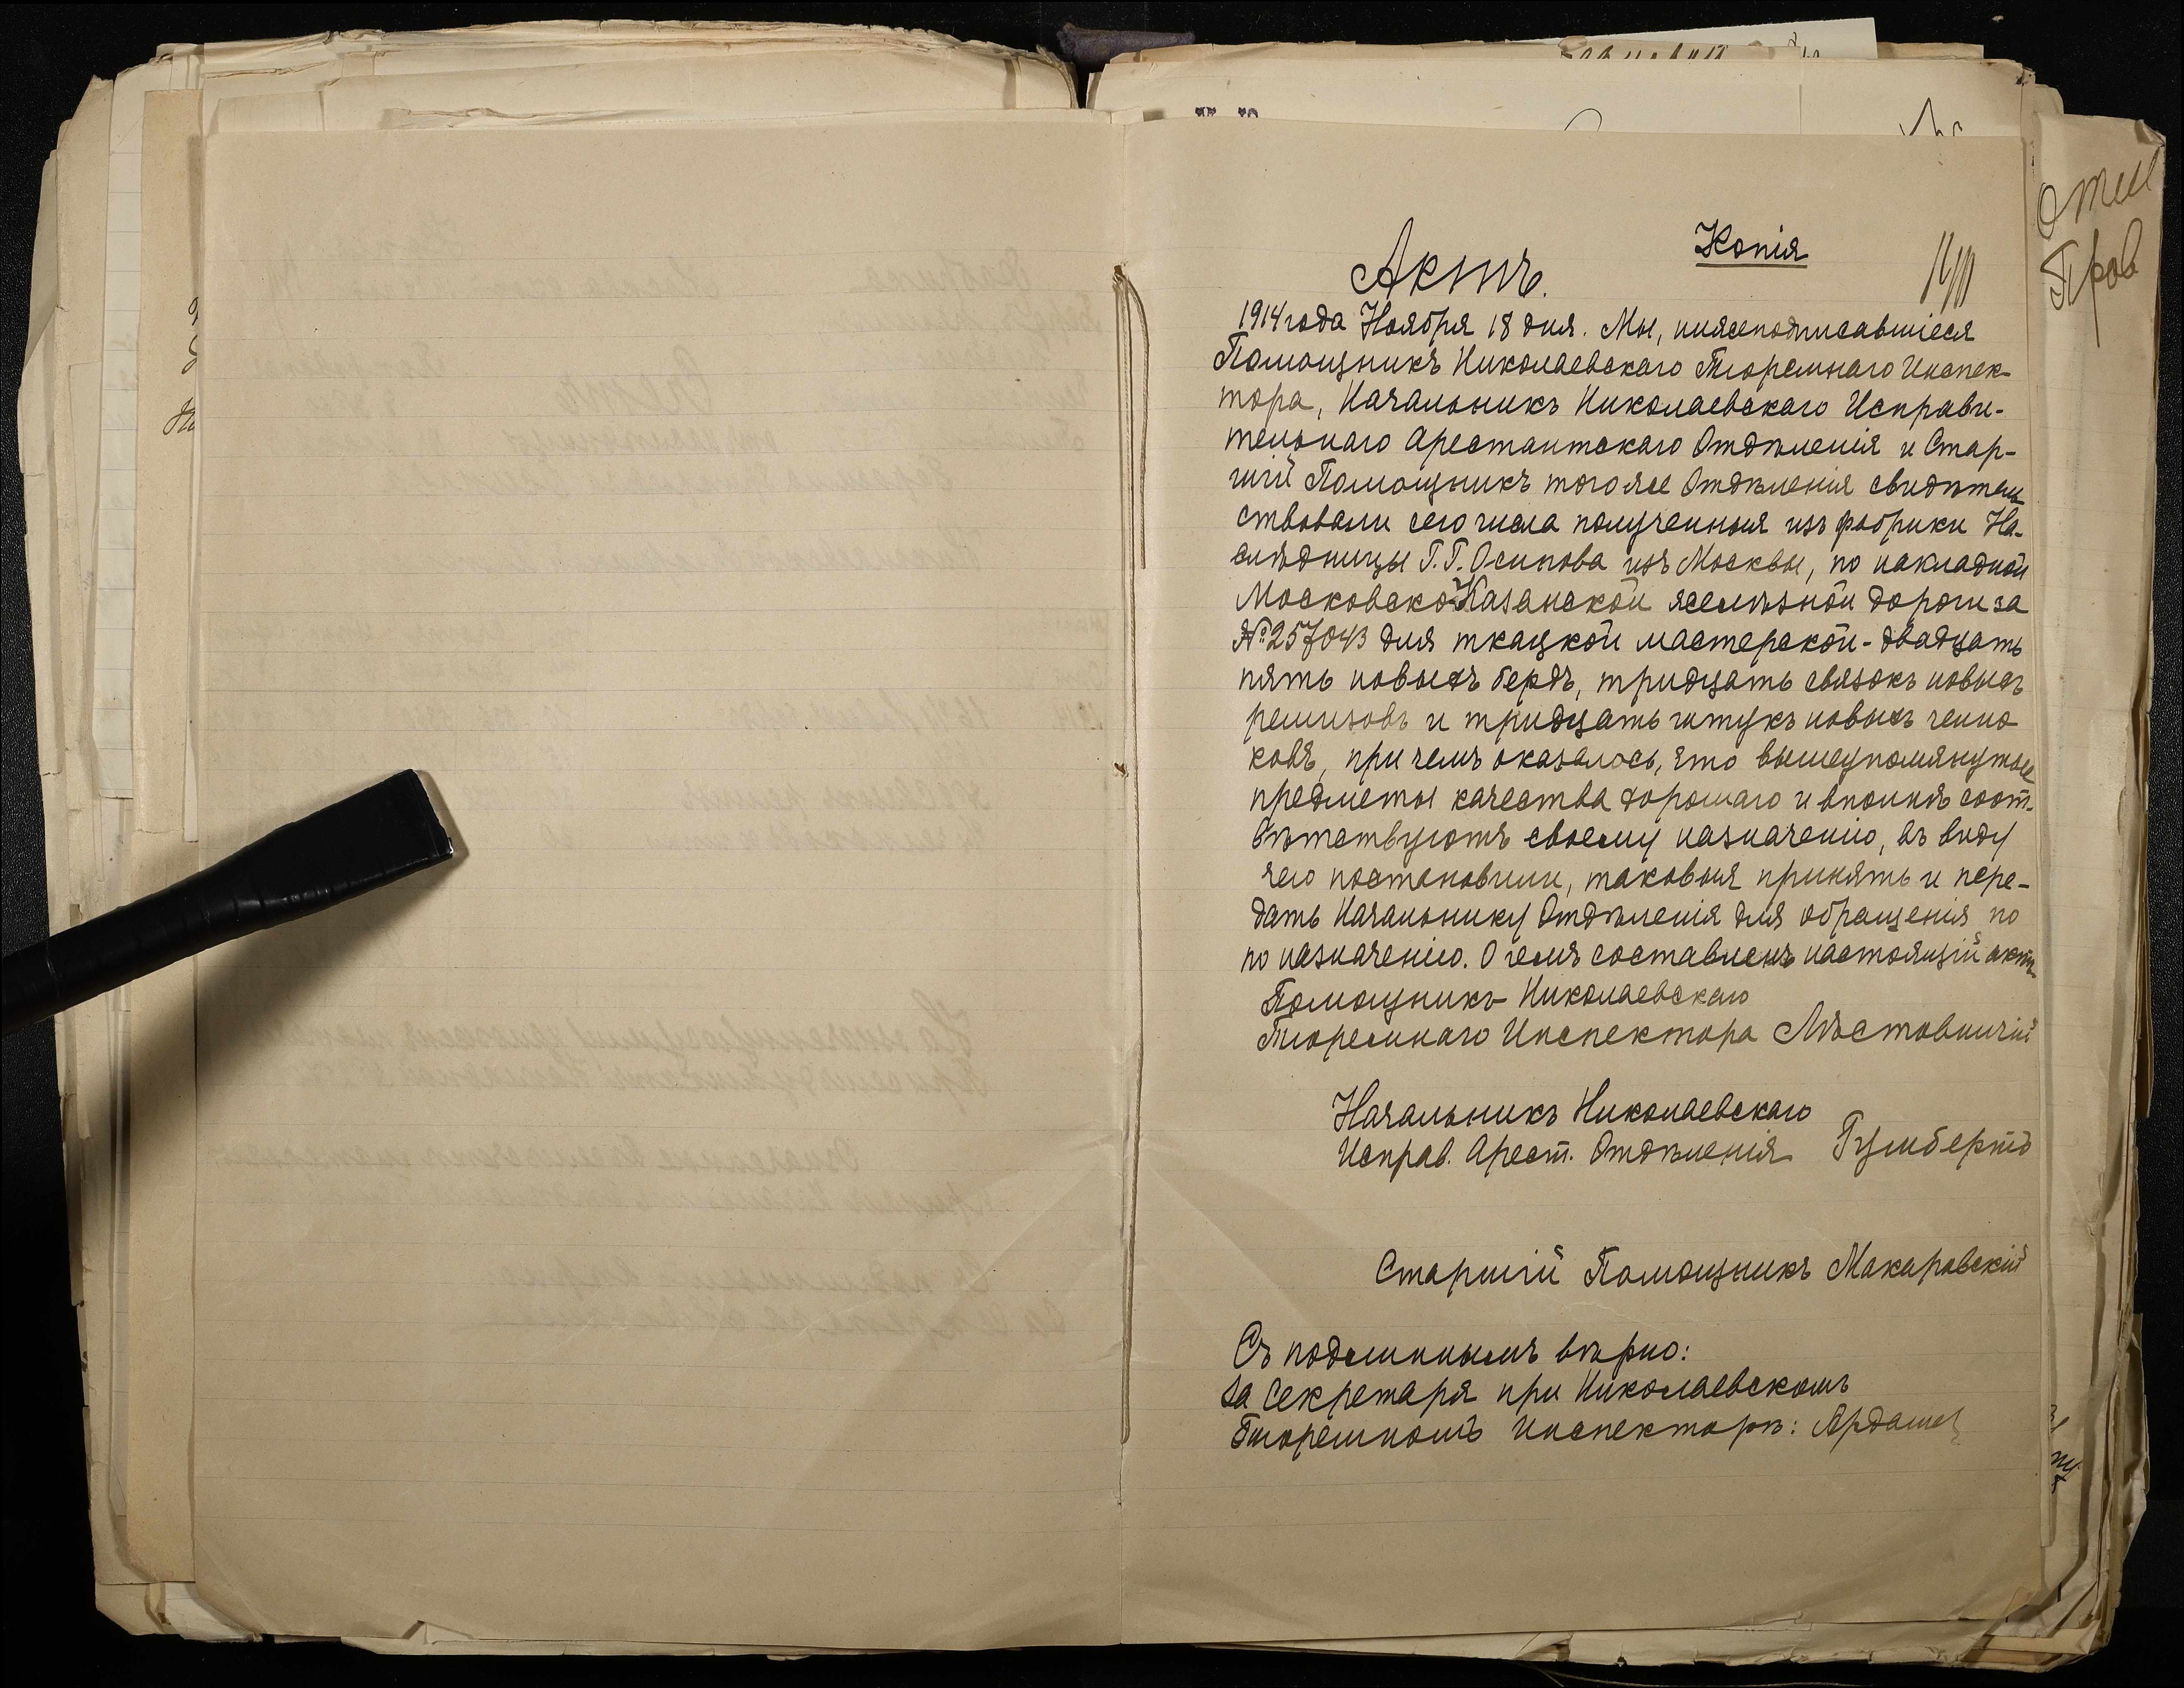 Копія
Актъ.
1914 года Ноября 18 дня. Мы, нижеподписавшіеся
Помощникъ Николаевскаго Тюремнаго Инспек-
тора, Начальникъ Николаевскаго Исправи-
тельнаго Арестантскаго Отдѣленія и Стар-
шій Помощникъ того же Отдѣленія свидѣтель
ствовали сего числа полученныя изъ фабрики На-
слѣдницы Г.Г. Осипова изъ Москвы, по накладной
Московско-Казанской желѣзной дороги за
№ 257043 для ткацкой мастерской - двадцать
пять новыхъ бердъ, тридцать связокъ новыхъ
ремизовъ и тридцать штукъ новыхъ челно
ковъ, при чемъ оказалось, что вышеупомянутые
предметы качества хорошаго и вполнѣ соот-
вѣтствуютъ своему назначенію, въ виду
чего постановили, таковыя принять и пере-
дать Начальнику Отдѣленія для обращенія по
по назначенію. О чемъ составленъ настоящій актъ
Помощникъ Николаевскаго
Тюремнаго Инспектора
Начальникъ Николаевскаго
Исправ. Арест. Отдѣленія Гумбертъ
Старшій Помощникъ Макаровскій
Съ подлиннымъ вѣрно:
За Секретаря при Николаевскомъ
Тюремномъ Инспекторѣ:
Отп
Пров